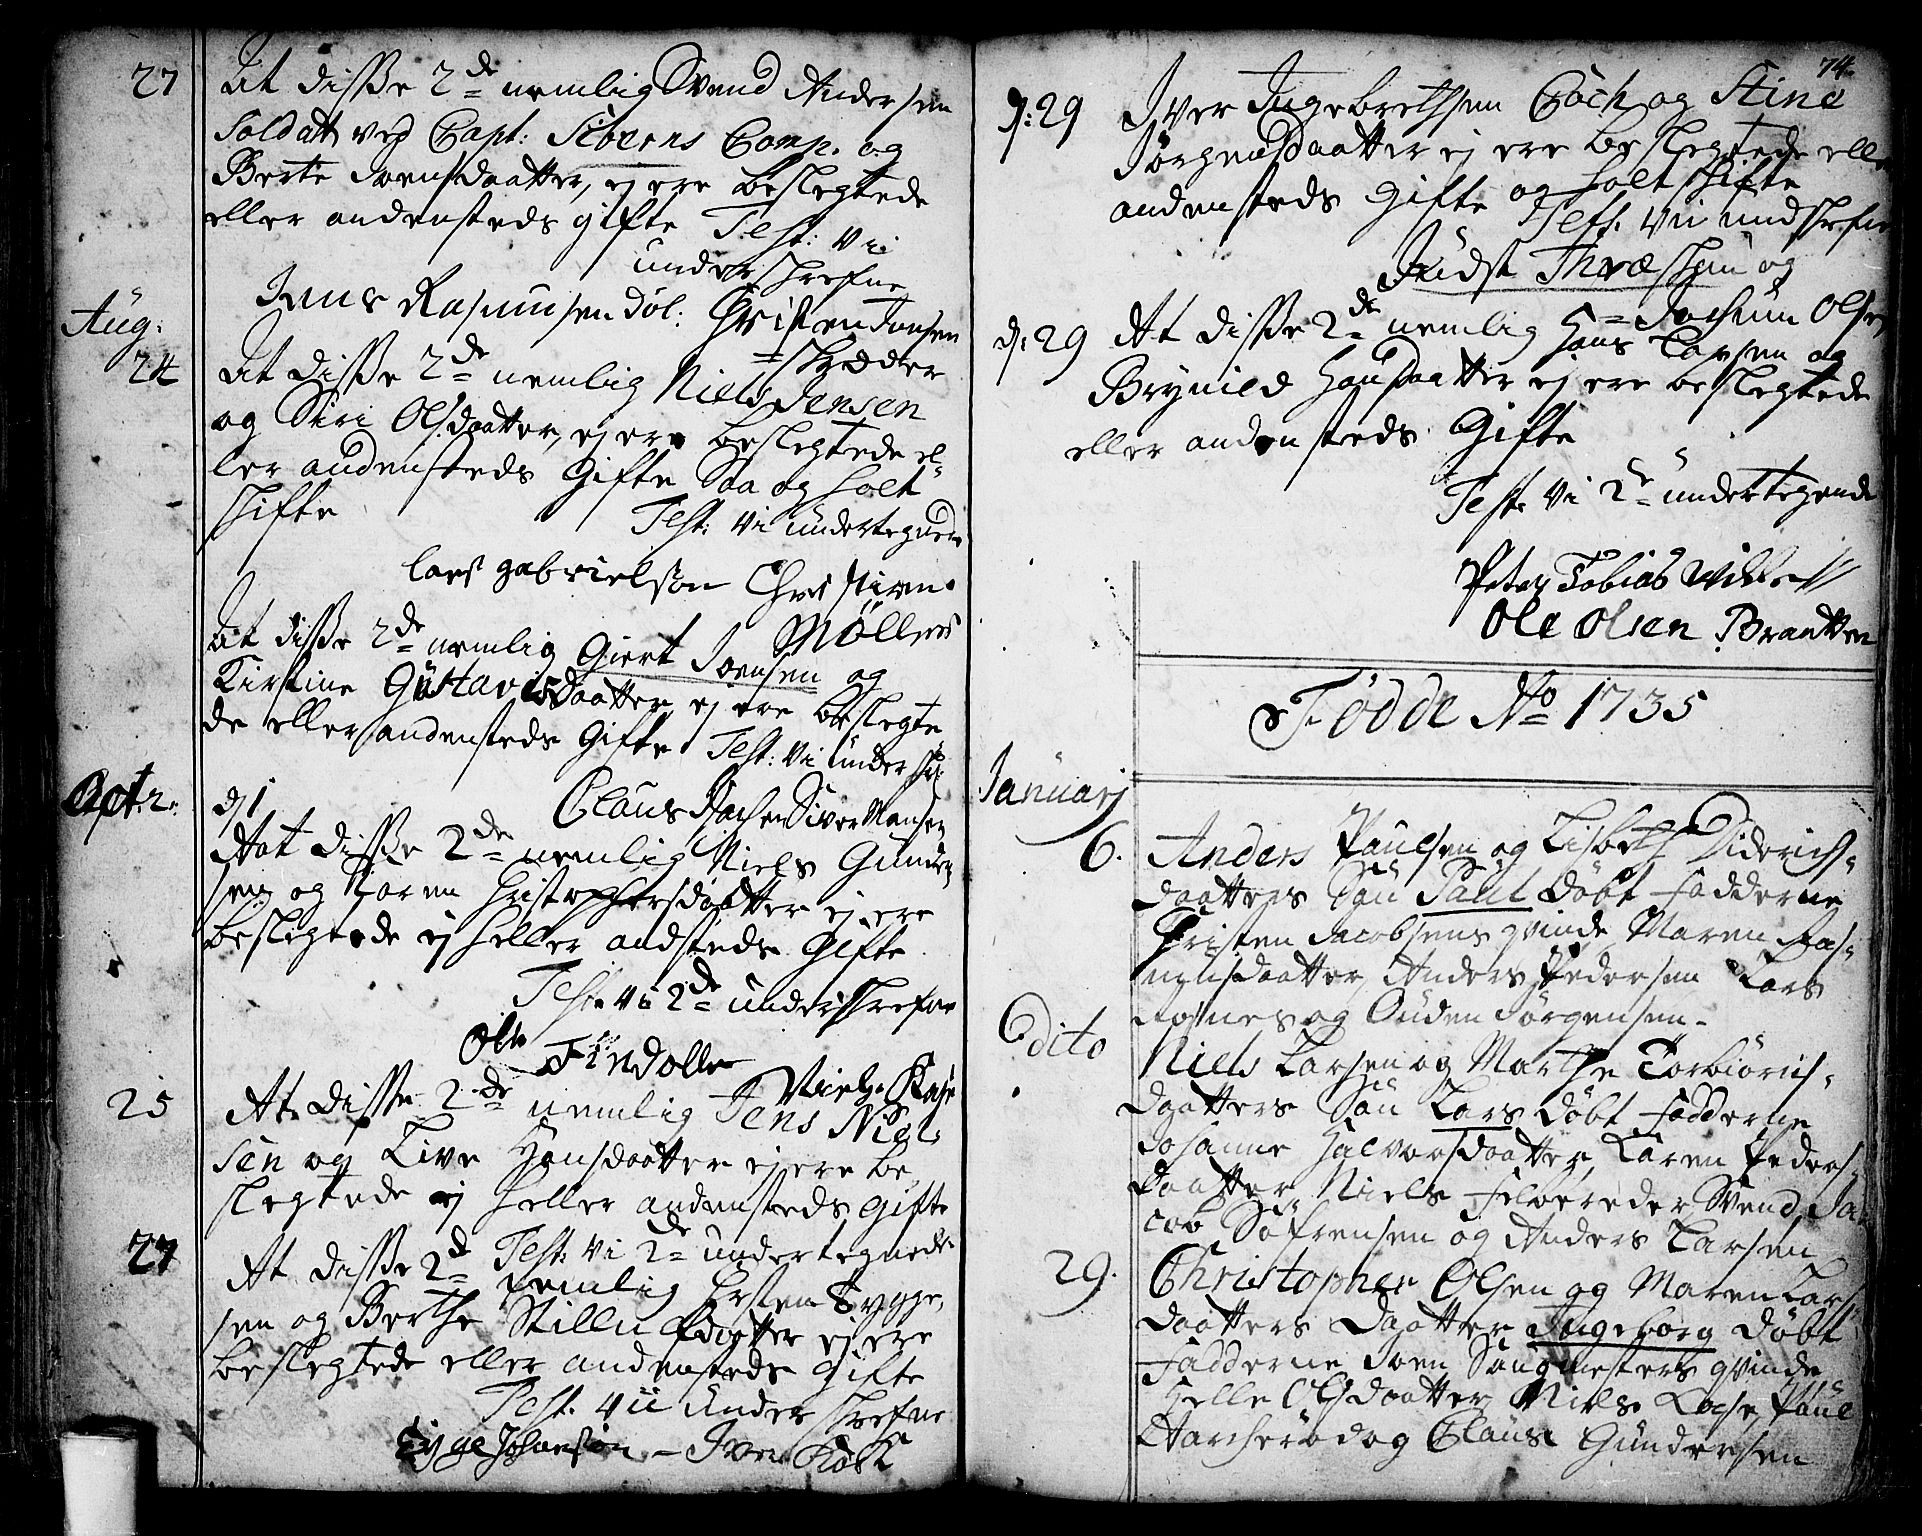 27 At disse 2de nemlig Svend Andersen
Soldatt ved Capt: Siverns Comp. og
Berte Svensdaatter, ej ere beslegtede
eller andensteds gifte Test: vi
underskrefne
Jens Rasmusen Døl: Christen Jonsen
Aug:
24 At disse 2de nemlig Niels Jensen
og Siri Olsdaatter, ej ere beslegtede el-
ler andensteds Gifte Saa og holt
skifte
Test: vi undertegnede
lars gabrielsøn Christian
Møller
At disse 2de nemlig Giert Svensen og
Kirstine Gustavisdaatter ej ere beslegte
de eller andensteds Gifte Test: vi under
d 1 Claus Siver Hansen
Aat disse 2de nemlig Niels Gunder
sen og Karen Christophersdaatter ej ere
beslegtede ej heller andsteds Gifte
Test vi 2de underskrefne
Ole
Findolle
25 At disse 2de nemlig Jens Niel
sen og Live Hansdaatter ej ere be
slegtede ej heller andensteds gifte
Test: vi 2de undertegnede
27 At disse 2de nemlig Tygge
sen og Berthe daatter ej ere
beslegtede eller andensteds Gifte
Test. vii underskrefne
Tygge Johansøn - Iver Kock
74.
d: 29 Iver Ingebrethsen Coch og Stine
Jørgensdaatter ej ere beslegtede eller
andensteds Gifte og holt skifte
Test. vii undskrefne
og
d: 29 At disse 2de nemlig Hans Larsen og
Brynild Hansdaatter ej ere beslegtede
eller andensteds Gifte
Test. vi 2de undertegnede
Peter Tobias
Ole Olsen Brantten
Fødde No 1735
Januarj
6. Anders Paulsen og Lisbeth Diderich-
daatters Søn Paul døbt Fadderne
Christen Jacobsens qvinde, Maren Ras-
musdaatter, Anders Pedersen Lars
og Auden Jørgensen.
Dito Niels Larsen og Marthe Torbiørns-
daatters Søn Lars døbt Fadderne
Johanne Halvorsdaatter, Karen Peders-
daatter, Niels Svend, Ja-
cob Søfrensen og Anders Larsen
29. Christopher Olsen og Maren Lars
daatters Daatter Ingeborg døbt
Fadderne Sven Saugmesters qvinde
Helle Olsdaatter, Niels Paul
og Claus Gundersen